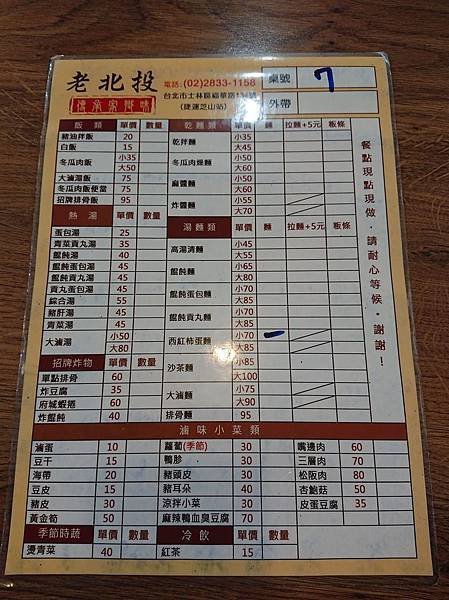 老北投
傳承客家味
電話:(02)2833-1158
台北市士林區福華路
(捷運芝山站)
桌號 7
外帶
飯類 單價 數量
豬油拌飯 20
白飯 15
冬瓜肉飯 小35 大50
大滷飯 75
冬瓜肉飯便當 75
招牌排骨飯 95
熱湯 單價 數量
蛋包湯 25
青菜貢丸湯 35
餛飩湯 40
餛飩蛋包湯 45
餛飩貢丸湯 45
貢丸蛋包湯 45
綜合湯 55
豬肝湯 45
青菜湯 45
大滷湯 小50 大80
招牌炸物 單價 數量
單點排骨 60
炸豆腐 35
府城蝦捲 60
炸餛飩 40
乾麵類 單價 麵 拉麵+5元 粄條
乾拌麵 小35 大45
冬瓜肉燥麵 小50 大60
麻醬麵 小50 大60
炸醬麵 小55 大70
湯麵類 單價 麵 拉麵+5元 粄條
高湯清麵 小45 大55
餛飩麵 小65 大80
餛飩蛋包麵 小70 大85
餛飩貢丸麵 小70 大85
西紅柿蛋麵 小70 大85
沙茶麵 小85 大100
大滷麵 小75 大90
排骨麵 95
餐點現點現做,請耐心等候,謝謝!
滷味小菜類
滷蛋 10 蘿蔔(季節) 30 嘴邊肉 60
豆干 15 鴨胗 30 三層肉 70
海帶 20 豬頭皮 30 松阪肉 80
豆皮 15 豬耳朵 40 杏鮑菇 50
豬皮 30 涼拌小菜 30 皮蛋豆腐 35
黃金筍 50 麻辣鴨血臭豆腐 70
季節時蔬 單價 數量 冷飲 單價 數量
燙青菜 40 紅茶 15